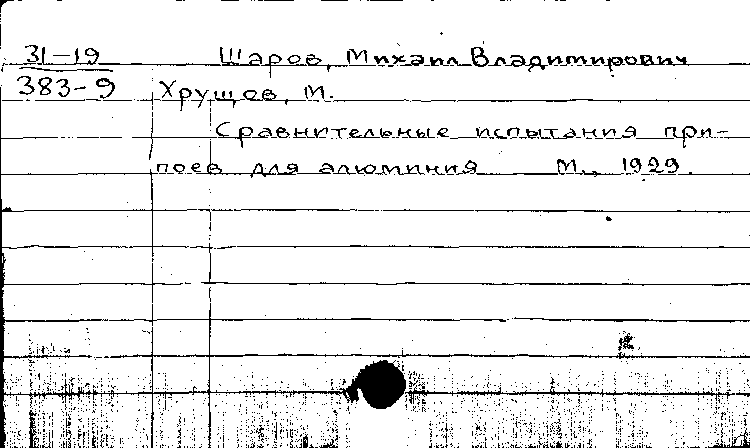 31-19 Шаров, Михаил Владимирович
383-9 Хрущов, М.
Сравнительные испытания при-
поев для алюминия М., 1929.